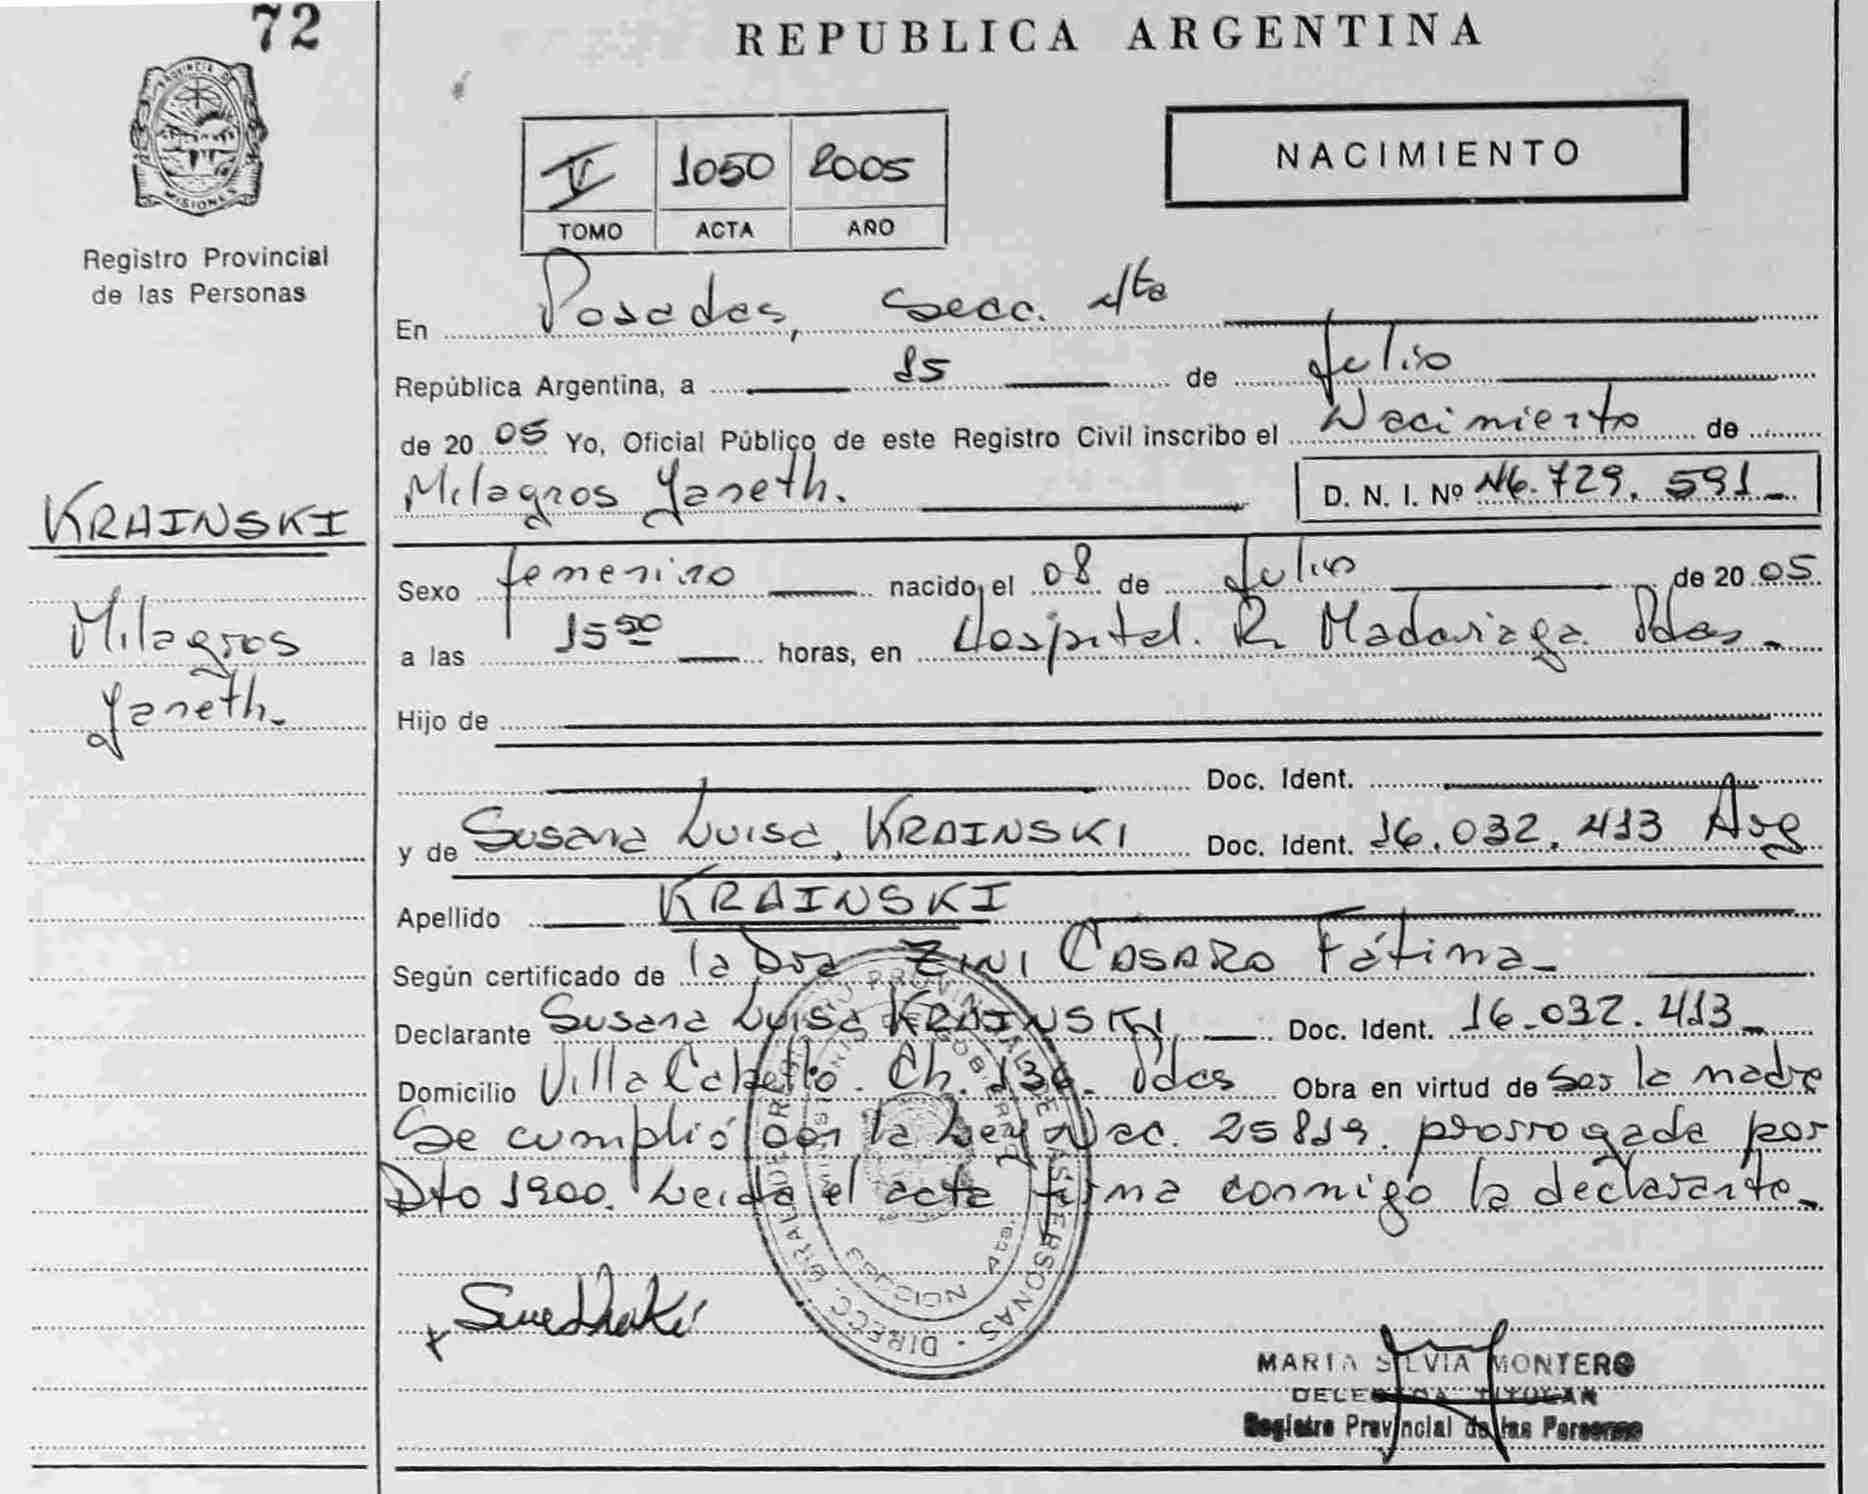 72
REPUBLICA ARGENTINA
PROVINCIA DE
MISIONES
Registro Provincial
de las Personas
1050 2005
TOMO ACTA AÑO
NACIMIENTO
En Posadas, Secc. 4ta
República Argentina, a 15 de Julio
de 2005 Yo, Oficial Público de este Registro Civil inscribo el Nacimiento de
Milagros Yaneth. D. N. I. Nº 46.729.591
KRAINSKI
Milagros
Yaneth.
Sexo femenino nacido el 08 de Julio de 2005
a las 15 50 horas, en Hospital. R. Madariaga. Pdas.
Hijo de
Doc. Ident.
y de Susana Luisa, KRAINSKI Doc. Ident. 16.032.413 Arg
Apellido KRAINSKI
Según certificado de la Dra ZINI CASARO Fátima
Declarante Susana Luisa KRAINSKI Doc. Ident. 16.032.413
Domicilio Villa Cabello. Ch. 136. Pdas Obra en virtud de ser la madre
Se cumplió con la Ley Nac. 25819. prorrogada por
Dto 1900. Leida el acta firma conmigo la declarante
MARIA SILVIA MONTERO
DELEGADA TITULAR
Registro Provincial de las Personas